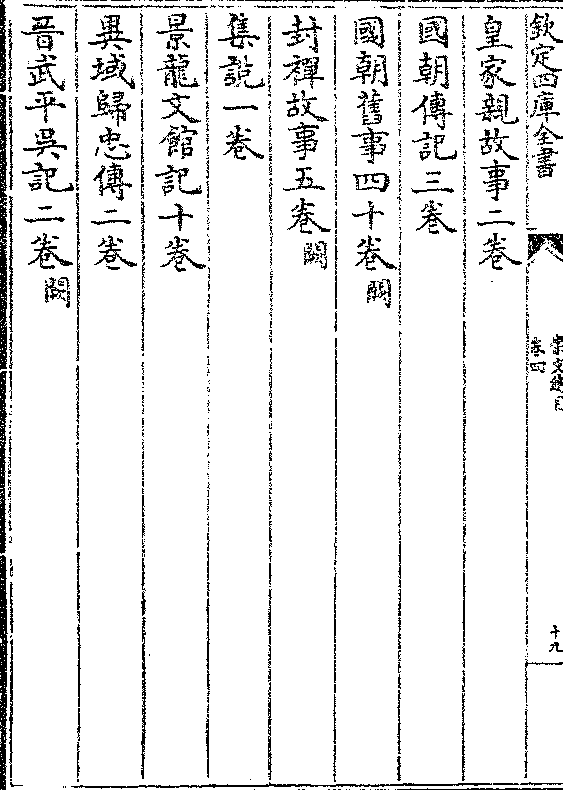 欽定四庫全書
崇文總目
卷四
十九
皇家親故事二卷
國朝傳記三卷
國朝舊事四十卷闕
封禪故事五卷闕
集說一卷
景龍文館記十卷
異域歸忠傳二卷
晉武平吳記二卷闕